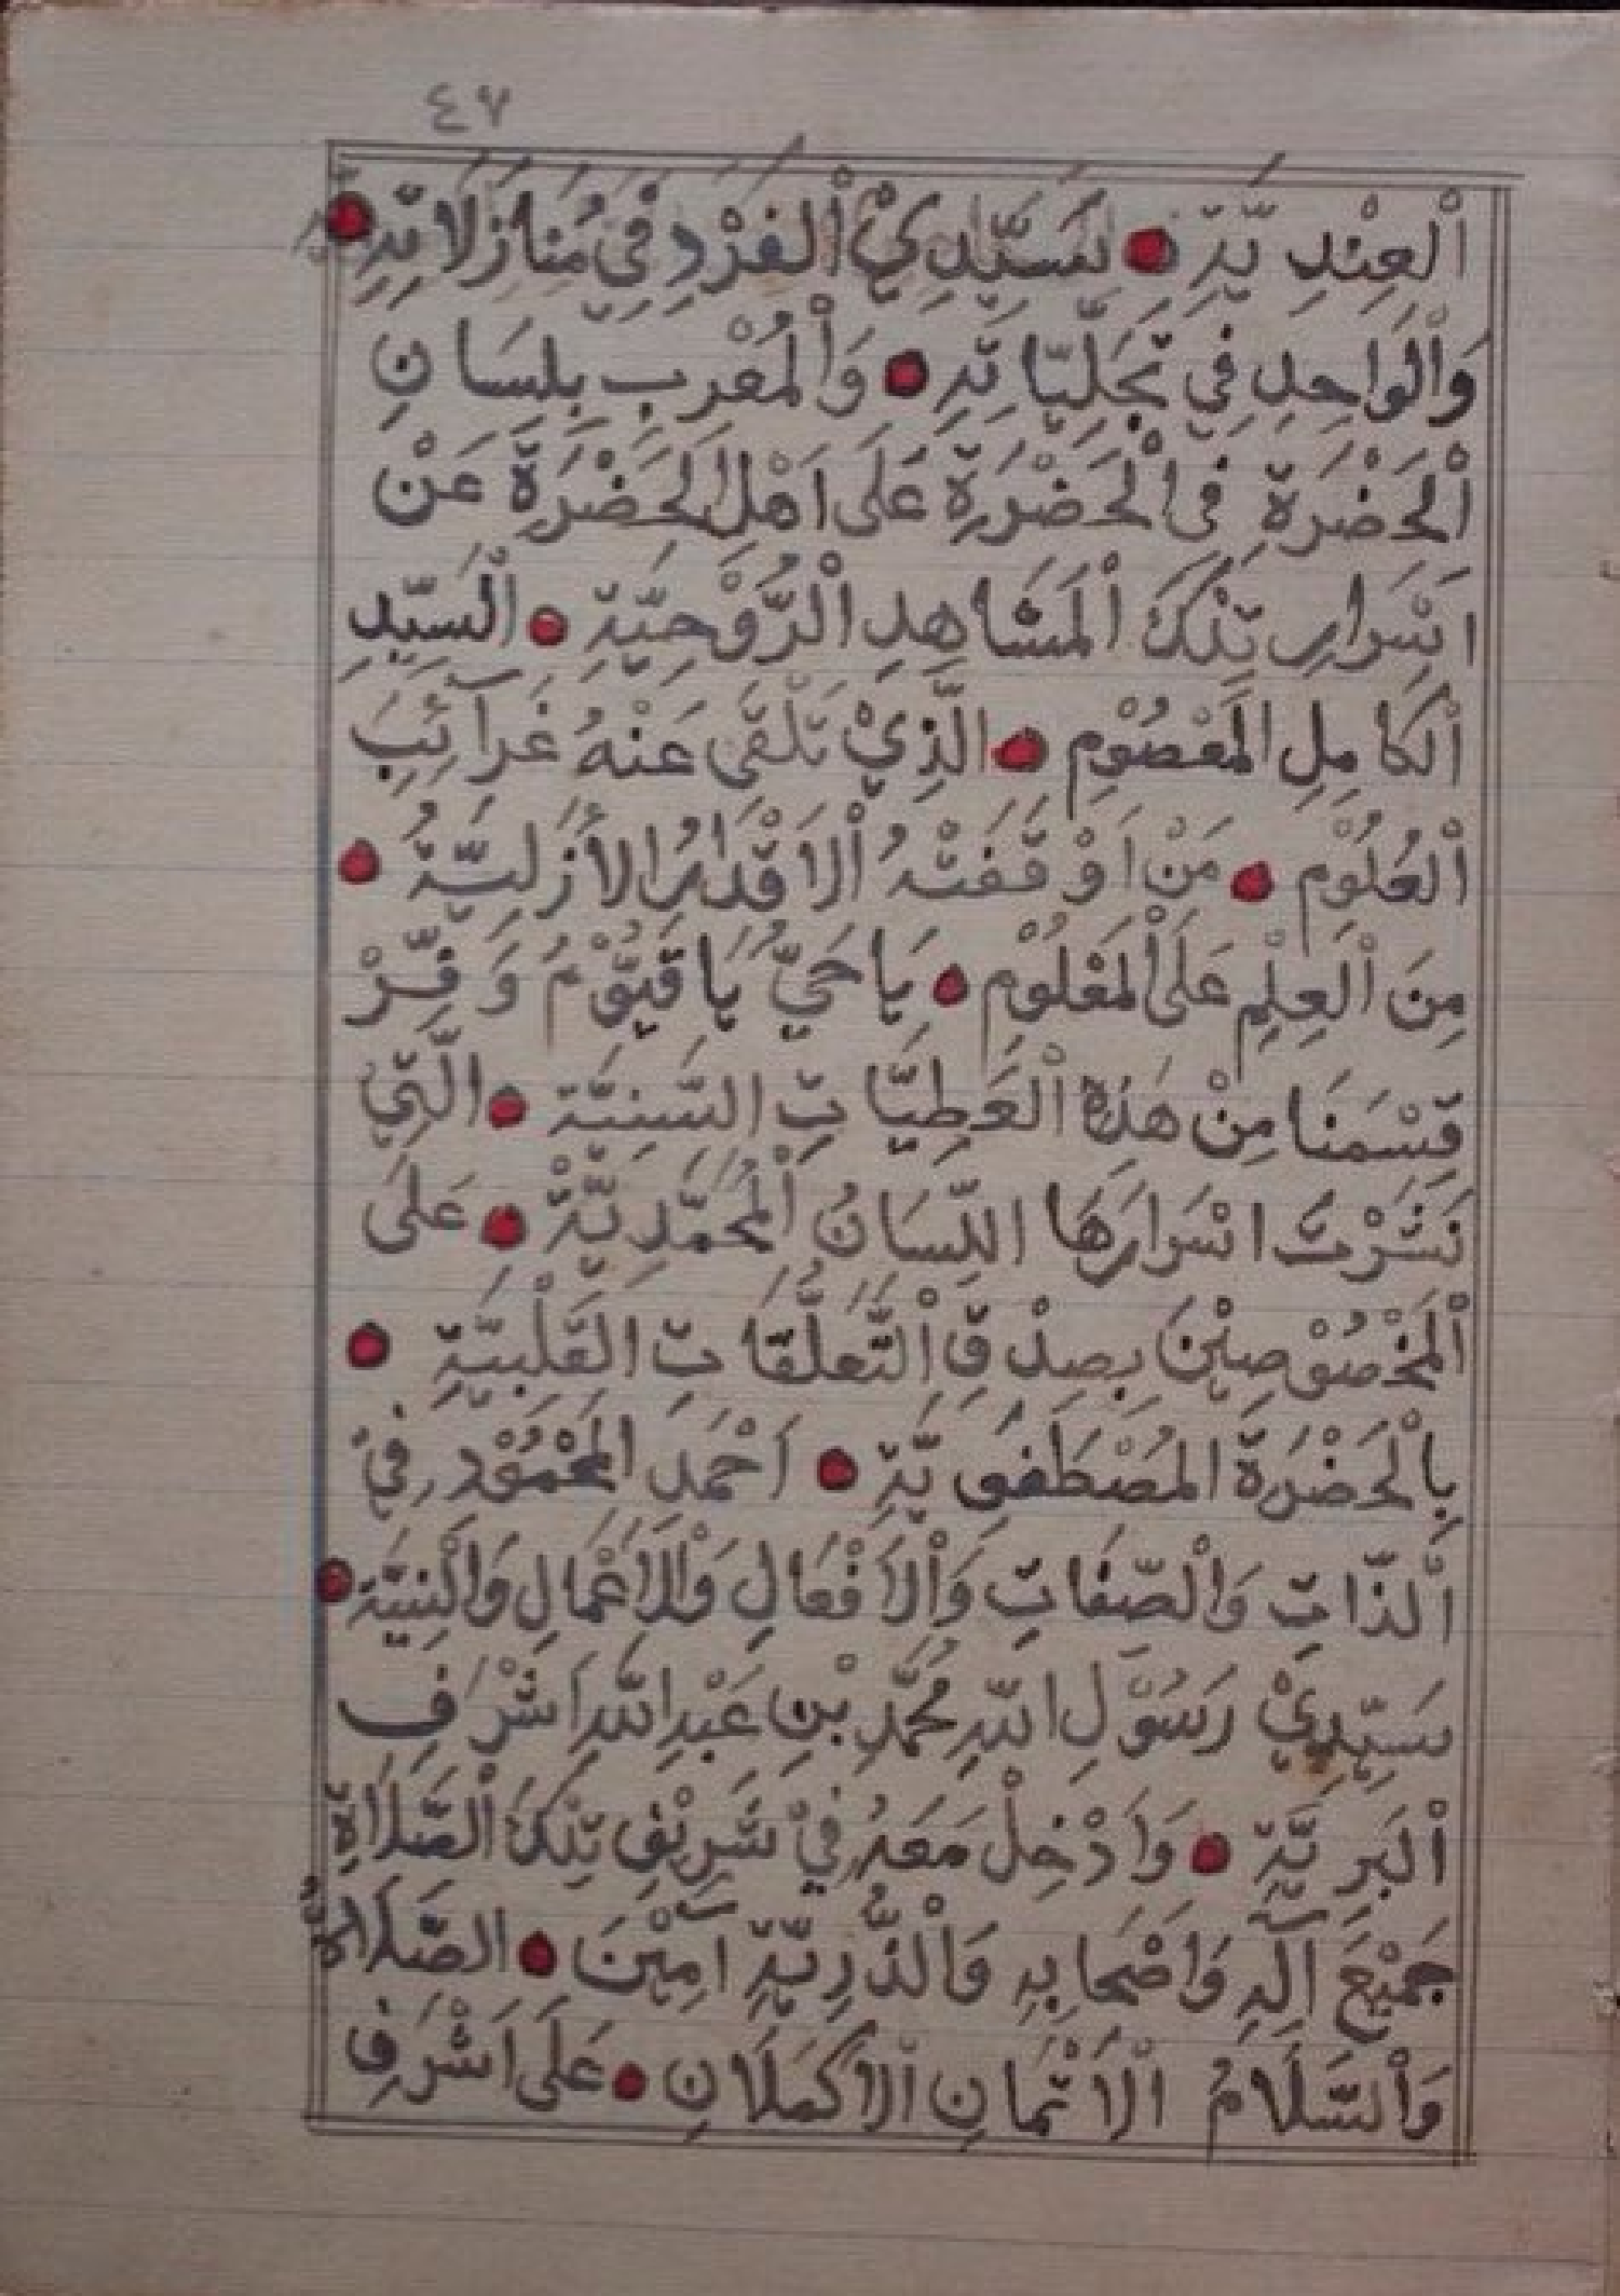 ٤٧
اَلْعِنْدِيَّةِ • سَيِّدِيْ اَلْفَرْدِ فِيْ مُنَازَلَاتِهِ •
وَاْلوَاحِدِ فِي تَجَلِّيَّاتِهِ • وَاْلمُعْرِبِ بِلِسَانِ
اْلحَضْرَةِ فِى اْلحَضْرَةِ عَلَى اَهْلِ الحَضْرَةِ عَنْ
اَسْرَارِ تِلْكَ اْلمَشَاهِدِ اْلرُّوْحِيَّةِ • اْلسَيِّدِ
اْلكَامِلِ الْمَعْصُوْمِ • الَّذِيْ تَلْقَى عَنْهُ غَرَآئِبَ
اْلعُلُوْمِ • مَنْ اَوْقَفَتْهُ اْلاَقْدَارُ الأَزَلِيَّةُ •
مِنَ اْلعِلْمِ عَلَى اْلمَعْلُوْمِ • يَا حَيُّ يَا قَيُّوْمُ وَفِّرْ
قِسْمَنَا مِنْ هَذِهِ اْلعَطِيَّاتِ السَّنِيَّةِ • الَّتِي
نَشَرْتَ اَسْرَارَهَا اللِّسَانُ اْلمُحَمَّدِيَّةْ • عَلَى
اْلمَخْصُوْصِيْنَ بِصِدْقِ اْلتَّعَلُّقَاتِ القَلْبِيَّةِ •
بِاْلحَضْرَةِ المُصْطَفَوِيَّةِ • اَحْمَدِ المَحْمُوْدِ فِيْ
اَلذَّاتِ وَاْلصِّفَاتِ وَاْلاَفْعَالِ وَاْلاَعْمَالِ وَاْلنِيَّةِ •
سَيِّدِيْ رَسُوْلِ اللهِ مُحَمَّدِ بْنِ عَبْدِ اللهِ اَشْرَفِ
اْلبَرِيَّةِ • وَاَدْخِلْ مَعَهُ فِيْ شَرِيْفِ تِلْكَ اْلصَّلَاةِ
جَمِيْعَ آلِهِ وَاَصْحَابِهِ وَاْلذُّرِيَّةِ آمِيْنَ • الصَّلَاةُ
وَاْلسَّلَامُ اْلاَتَمَّانِ اْلاَكْمَلَانِ • عَلَى اَشْرَفِ